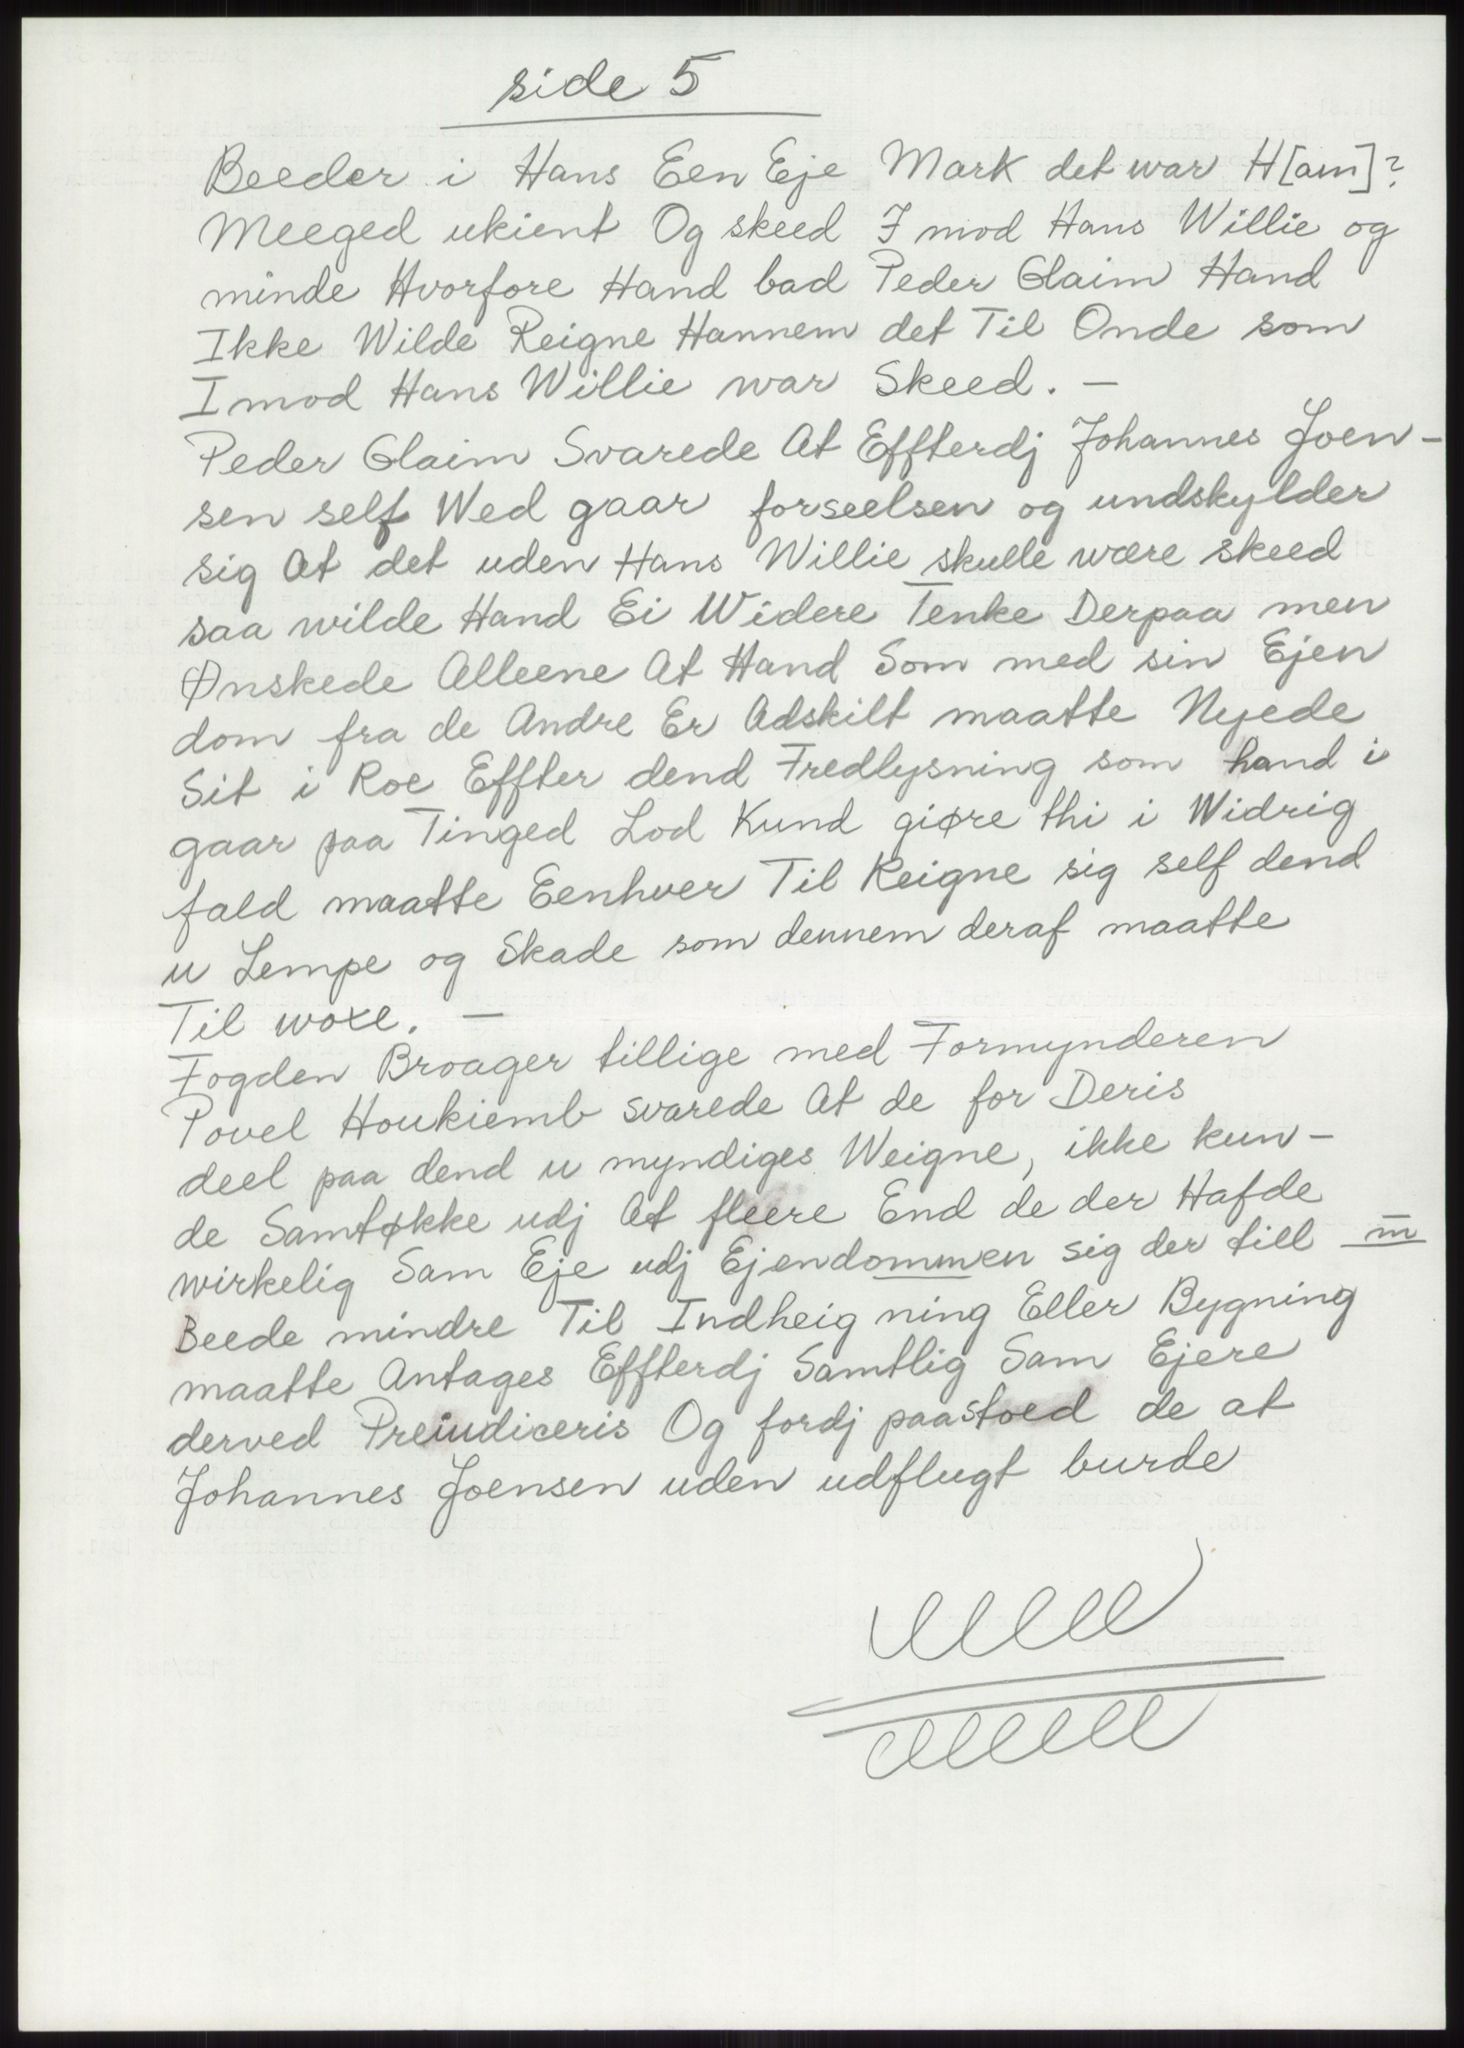 side 5
Beeder i Hans Een Eje Mark det war H[am]?
Meeged ukient Og skeed I mod Hans Willie og
minde Hvorfore Hand bad Peder Glaim Hand
Ikke Wilde Reigne Hannem det Til Onde som
I mod Hans Willie war Skeed. —
Peder Glaim Svarede At Effterdj Johannes Joen-
sen self Wed gaar forseelsen og undskylder
sig At det uden Hans Willie skulle wære skeed
saa wilde Hand Ei Widere Tenke Derpaa men
Ønskede Alleene At Hand Som med sin Ejen
dom fra de Andre Er Adskilt maatte Nyede
Sit i Roe Effter dend Fredlysning som hand i
gaar paa Tinged Lod Kund giøre thi i Widrig
fald maatte Eenhver Til Reigne sig self dend
u Lempe og Skade som dennem deraf maatte
Til woxe. —
Fogden Broager tillige med Formynderen
Povel Houkiemb svarede At de for Deris
deel paa dend u myndiges Weigne, ikke kun-
de Samtøkke udj At fleere End de der Hafde
wirkelig Sam Eje udj Ejendommen sig der till m̅
Beede mindre Til Indheig ning Eller Bygning
maatte Antages Effterdj Samtlig Sam Ejere
derved Preiudiceris Og fordj paastoed de at
Johannes Joensen uden udflugt burde